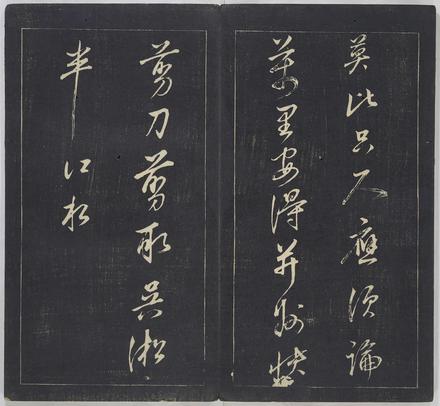 莫比咫尺應須論
萬里安得并州快
剪刀剪取吳淞
半江水